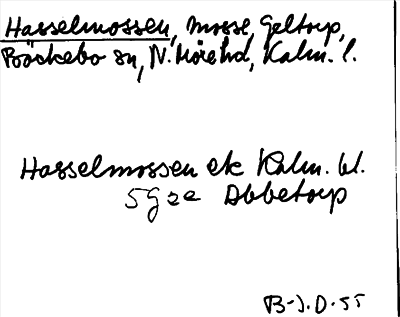 Hasselmossen, mosse, Geltorp,
Bäckebo sn, N. Möre hd, Kalm. l.
Hasselmossen ek Kalm. bl.
5G 2e Abbetorp
B-J.D.55